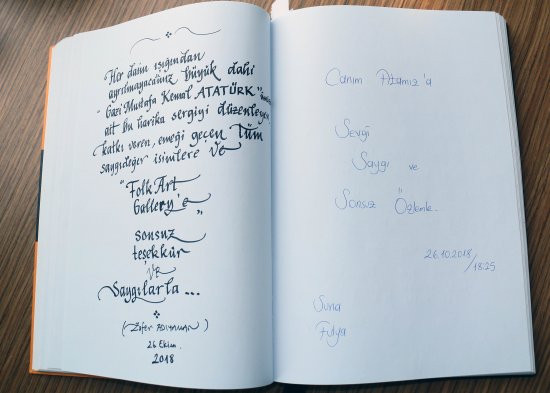 Her daim ışığından
ayrılmayacağımız büyük dahi
"Gazi Mustafa Kemal ATATÜRK"
ait bu harika sergiyi düzenleyen,
katkı veren, emeği geçen Tüm
saygıdeğer isimlere ve
"Folk Art
Gallery'e"
sonsuz
teşekkür
ve
Saygılarla...
(Zafer ADIYAMAN)
26 Ekim.
2018
Canım Atamız'a
Sevgi
Saygı ve
Sonsuz Özlemle.
26.10.2018/18:25
Suna
Fulya